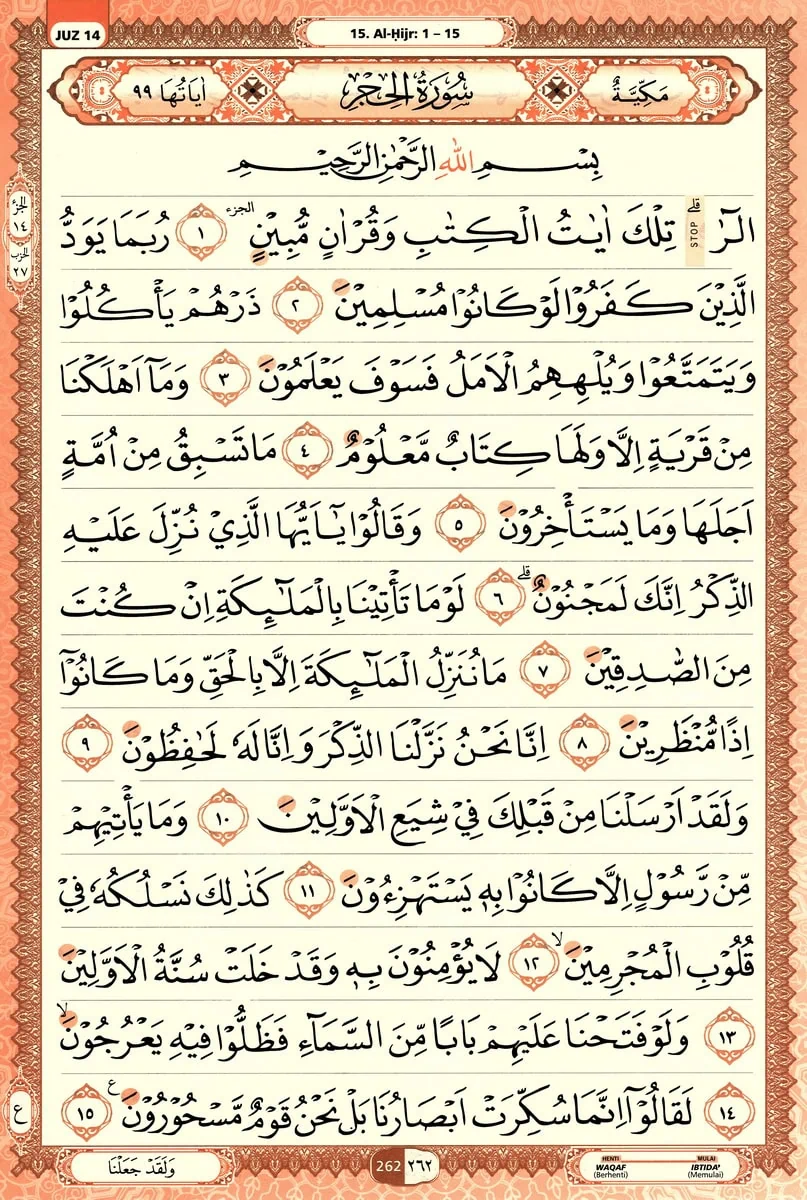 JUZ 14
15. Al-Ḥijr: 1 – 15
مَكِّيَّةٌ سُوْرَةُ الْحِجْرِ اٰيَاتُهَا ٩٩
بِسْمِ اللّٰهِ الرَّحْمٰنِ الرَّحِيْمِ
الجزء
١٤
الحزب
٢٧
الۤرٰ ۗ STOP تِلْكَ اٰيٰتُ الْكِتٰبِ وَقُرْاٰنٍ مُّبِيْنٍ الجزء ١ رُبَمَا يَوَدُّ
الَّذِيْنَ كَفَرُوْا لَوْ كَانُوْا مُسْلِمِيْنَ ٢ ذَرْهُمْ يَأْكُلُوْا
وَيَتَمَتَّعُوْا وَيُلْهِهِمُ الْاَمَلُ فَسَوْفَ يَعْلَمُوْنَ ٣ وَمَآ اَهْلَكْنَا
مِنْ قَرْيَةٍ اِلَّا وَلَهَا كِتَابٌ مَّعْلُوْمٌ ٤ مَا تَسْبِقُ مِنْ اُمَّةٍ
اَجَلَهَا وَمَا يَسْتَأْخِرُوْنَ ٥ وَقَالُوْا يٰٓاَيُّهَا الَّذِيْ نُزِّلَ عَلَيْهِ
الذِّكْرُ اِنَّكَ لَمَجْنُوْنٌ ۗ ٦ لَوْ مَا تَأْتِيْنَا بِالْمَلٰۤىِٕكَةِ اِنْ كُنْتَ
مِنَ الصّٰدِقِيْنَ ٧ مَا نُنَزِّلُ الْمَلٰۤىِٕكَةَ اِلَّا بِالْحَقِّ وَمَا كَانُوْٓا
اِذًا مُّنْظَرِيْنَ ٨ اِنَّا نَحْنُ نَزَّلْنَا الذِّكْرَ وَاِنَّا لَهٗ لَحٰفِظُوْنَ ٩
وَلَقَدْ اَرْسَلْنَا مِنْ قَبْلِكَ فِيْ شِيَعِ الْاَوَّلِيْنَ ١٠ وَمَا يَأْتِيْهِمْ
مِّنْ رَّسُوْلٍ اِلَّا كَانُوْا بِهٖ يَسْتَهْزِءُوْنَ ١١ كَذٰلِكَ نَسْلُكُهٗ فِيْ
قُلُوْبِ الْمُجْرِمِيْنَ ۙ ١٢ لَا يُؤْمِنُوْنَ بِهٖ وَقَدْ خَلَتْ سُنَّةُ الْاَوَّلِيْنَ
١٣ وَلَوْ فَتَحْنَا عَلَيْهِمْ بَابًا مِّنَ السَّمَاۤءِ فَظَلُّوْا فِيْهِ يَعْرُجُوْنَ ۙ
١٤ لَقَالُوْٓا اِنَّمَا سُكِّرَتْ اَبْصَارُنَا بَلْ نَحْنُ قَوْمٌ مَّسْحُوْرُوْنَ ࣖ ١٥
ع
وَلَقَدْ جَعَلْنَا
262 ٢٦٢
HENTI WAQAF (Berhenti)
MULAI IBTIDA' (Memulai)